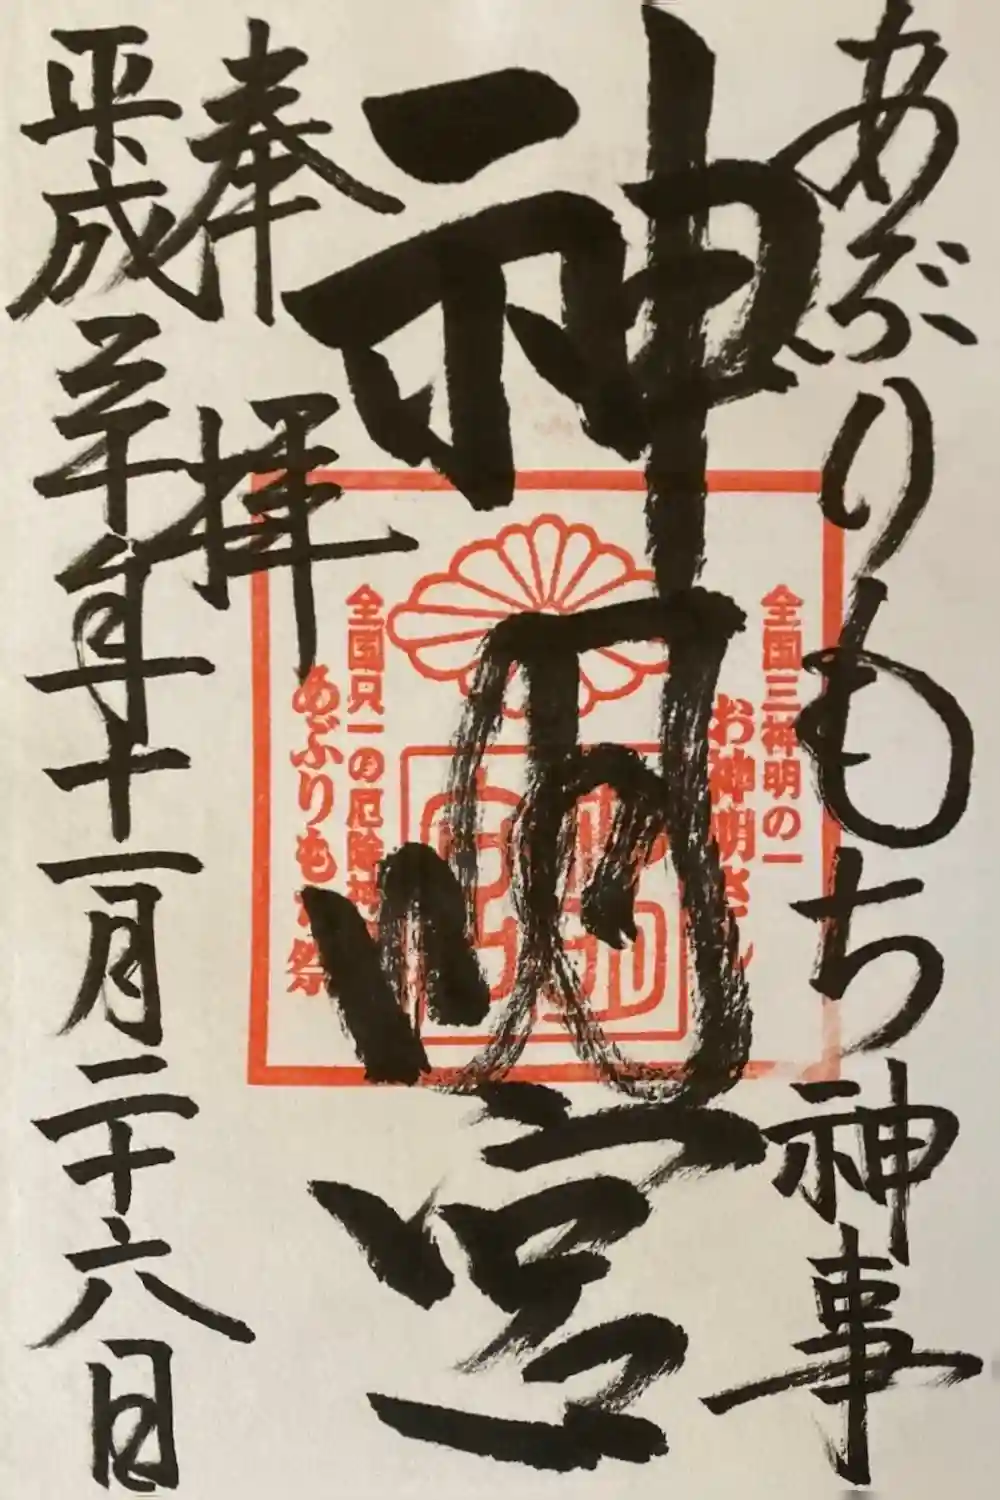 あぶりもち神事
神明宮
奉拝
平成三十年十一月二十六日
全国三神明の一
お神明さん
全国只一の厄除神
あぶりもち祭